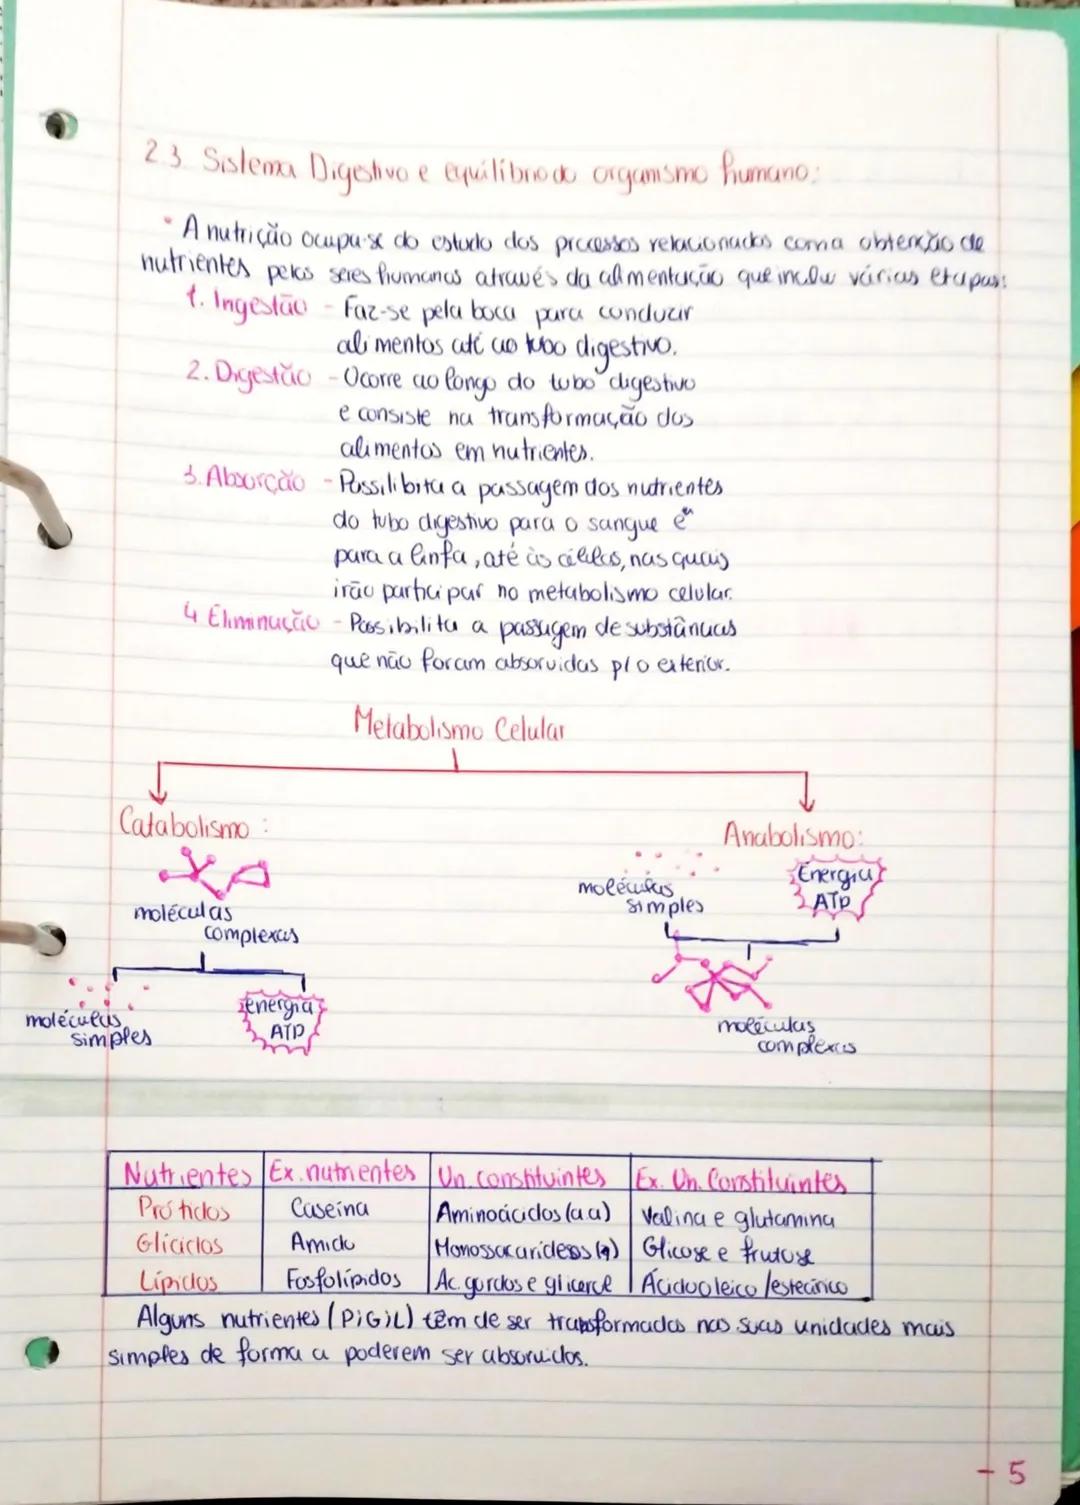 2.3. Sistema Digestivo e equilíbrio do organismo humano:
• A nutrição ocupa-se do estudo dos processos relacionados com a obtenção de
nutrientes pelos seres humanos através da alimentação que inclui várias etapas:
1. Ingestão - Faz-se pela boca para conduzir
alimentos até ao tubo digestivo.
2. Digestão - Ocorre ao longo do tubo digestivo
e consiste na transformação dos
alimentos em nutrientes.
3. Absorção - Possilibita a passagem dos nutrientes
do tubo digestivo para o sangue e
para a linfa, até às células, nas quais
irão participar no metabolismo celular.
4 Eliminação - Possibilita a passagem de substâncias
que não foram absorvidas p/o exterior.
Metabolismo Celular
Catabolismo:
moléculas
complexas
moléculas
simples
energia
ATP
Anabolismo:
moléculas
simples
Energia
ATP
moléculas
complexas
Nutrientes Ex. nutrientes Un. constituintes Ex. Un. Constituintes
Prótidos Caseína Aminoácidos (aa) Valina e glutamina
Glícidos Amido Monossacarídeos Glicose e frutose
Lípidos Fosfolípidos Ac. gordos e glicerol Ácido oleico /esteárico
Alguns nutrientes (P;G;L) têm de ser transformados nas suas unidades mais
simples de forma a poderem ser absorvidos.
- 5